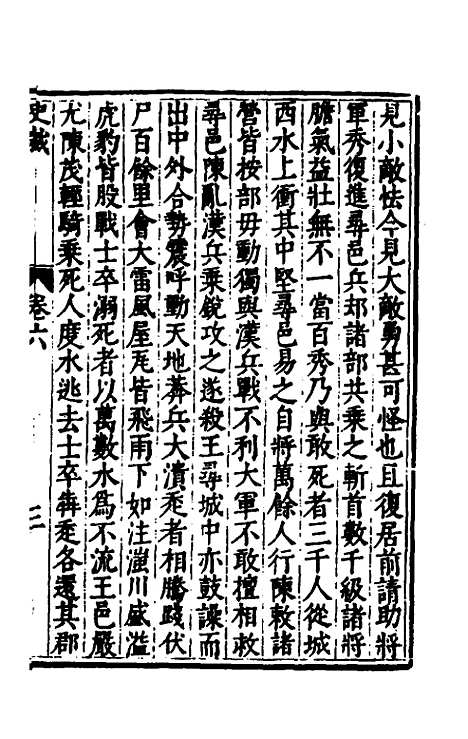 見小敵怯今見大敵勇甚可怪也且復居前請助將
軍秀復進尋邑兵却諸部共乗之斬首數千級諸將
膽氣益壯無不一當百秀乃與敢死者三千人從城
西水上衝其中堅尋邑易之自將萬餘人行陳敕諸
營皆按部毋動獨與漢兵戰不利大軍不敢擅相救
尋邑陳亂漢兵乗銳攻之遂殺王尋城中亦鼓譟而
出中外合勢震呼動天地莽兵大潰走者相騰踐伏
尸百餘里會大雷風屋瓦皆飛雨下如注滍川盛溢
虎豹皆股戰士卒溺死者以萬數水為不流王邑嚴
尤陳茂輕騎乗死人度水逃去士卒犇走各還其郡
史 卷六 三